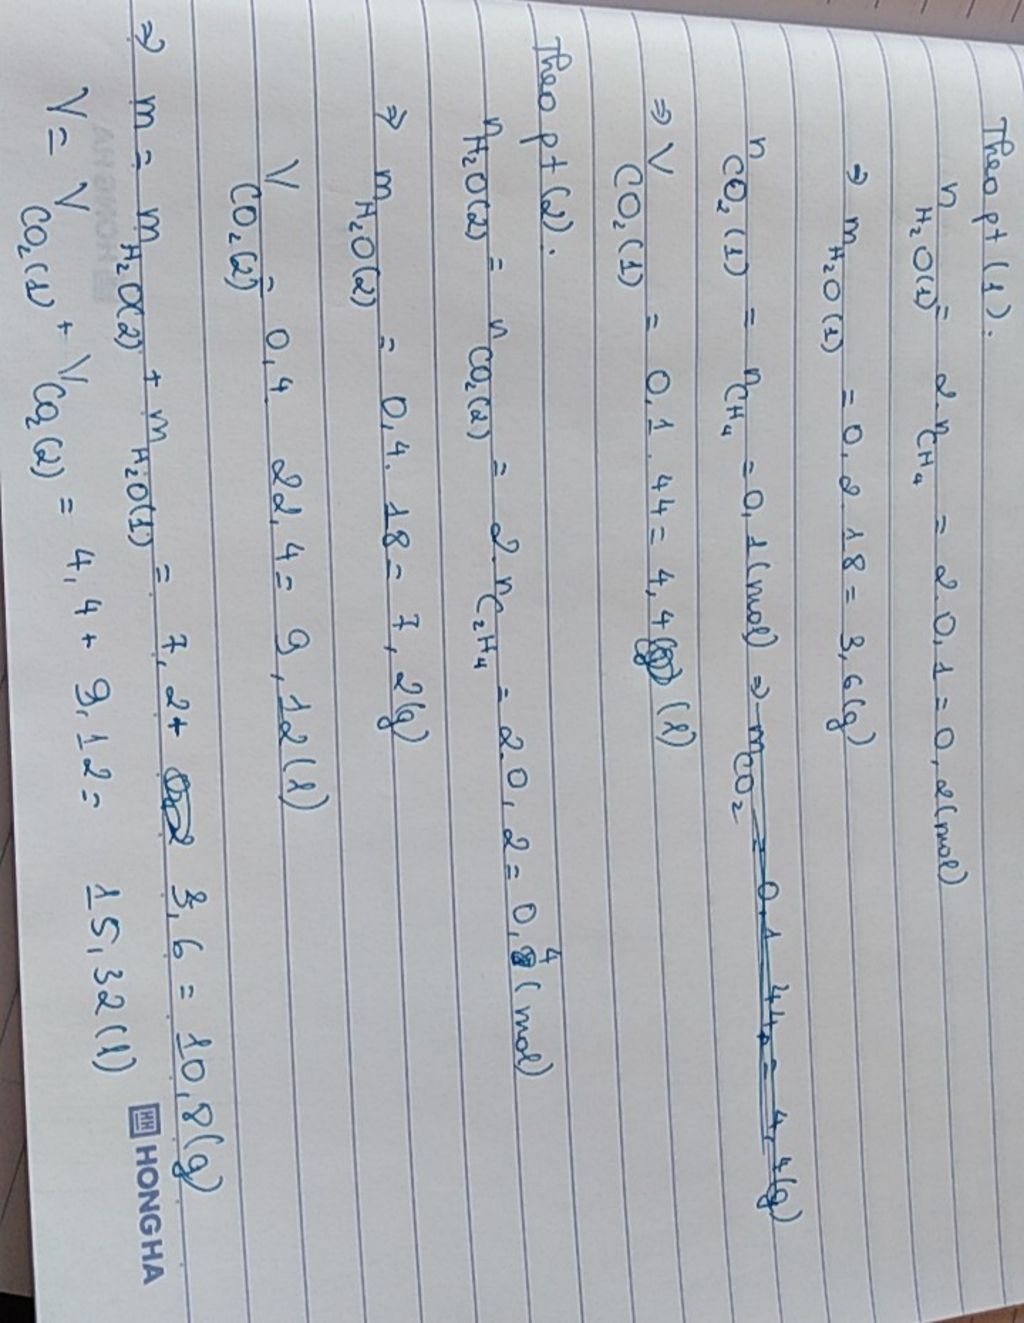 Theo pt (1).
n H₂O(1) = 2.n CH₄ = 2.0,1 = 0,2(mol)
⇒ m H₂O(1) = 0,2.18 = 3,6(g)
n CO₂(1) = n CH₄ = 0,1(mol) ⇒ m CO₂ = 0,1.44 = 4,4(g)
⇒ V CO₂(1) = 0,1.44 = 4,4 (l)
Theo pt (2).
n H₂O(2) = n CO₂(2) = 2.n C₂H₄ = 2.0,2 = 0,4(mol)
⇒ m H₂O(2) = 0,4.18 = 7,2(g)
V CO₂(2) = 0,4 22,4 = 9,12(l)
⇒ m = m H₂O(2) + m H₂O(1) = 7,2 + 3,6 = 10,8(g)
V = V CO₂(1) + V CO₂(2) = 4,4 + 9,12 = 15,32(l)
HH HONG HA